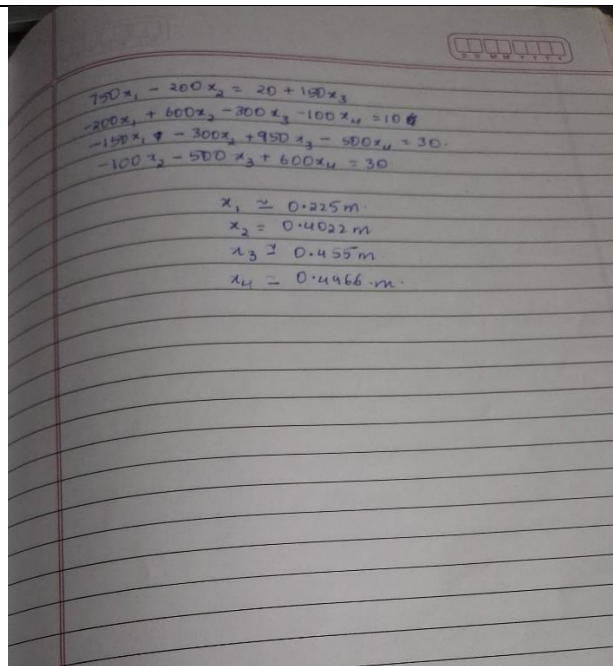 D D M M Y Y Y Y
750x₁ - 200x₂ = 20 + 150x₃
-200x₁ + 600x₂ - 300x₃ - 100x₄ = 10
-150x₁ - 300x₂ + 950x₃ - 500x₄ = 30.
-100x₂ - 500x₃ + 600x₄ = 30
x₁ ≃ 0.225m.
x₂ = 0.4022m
x₃ ≃ 0.455m
x₄ = 0.4966.m.